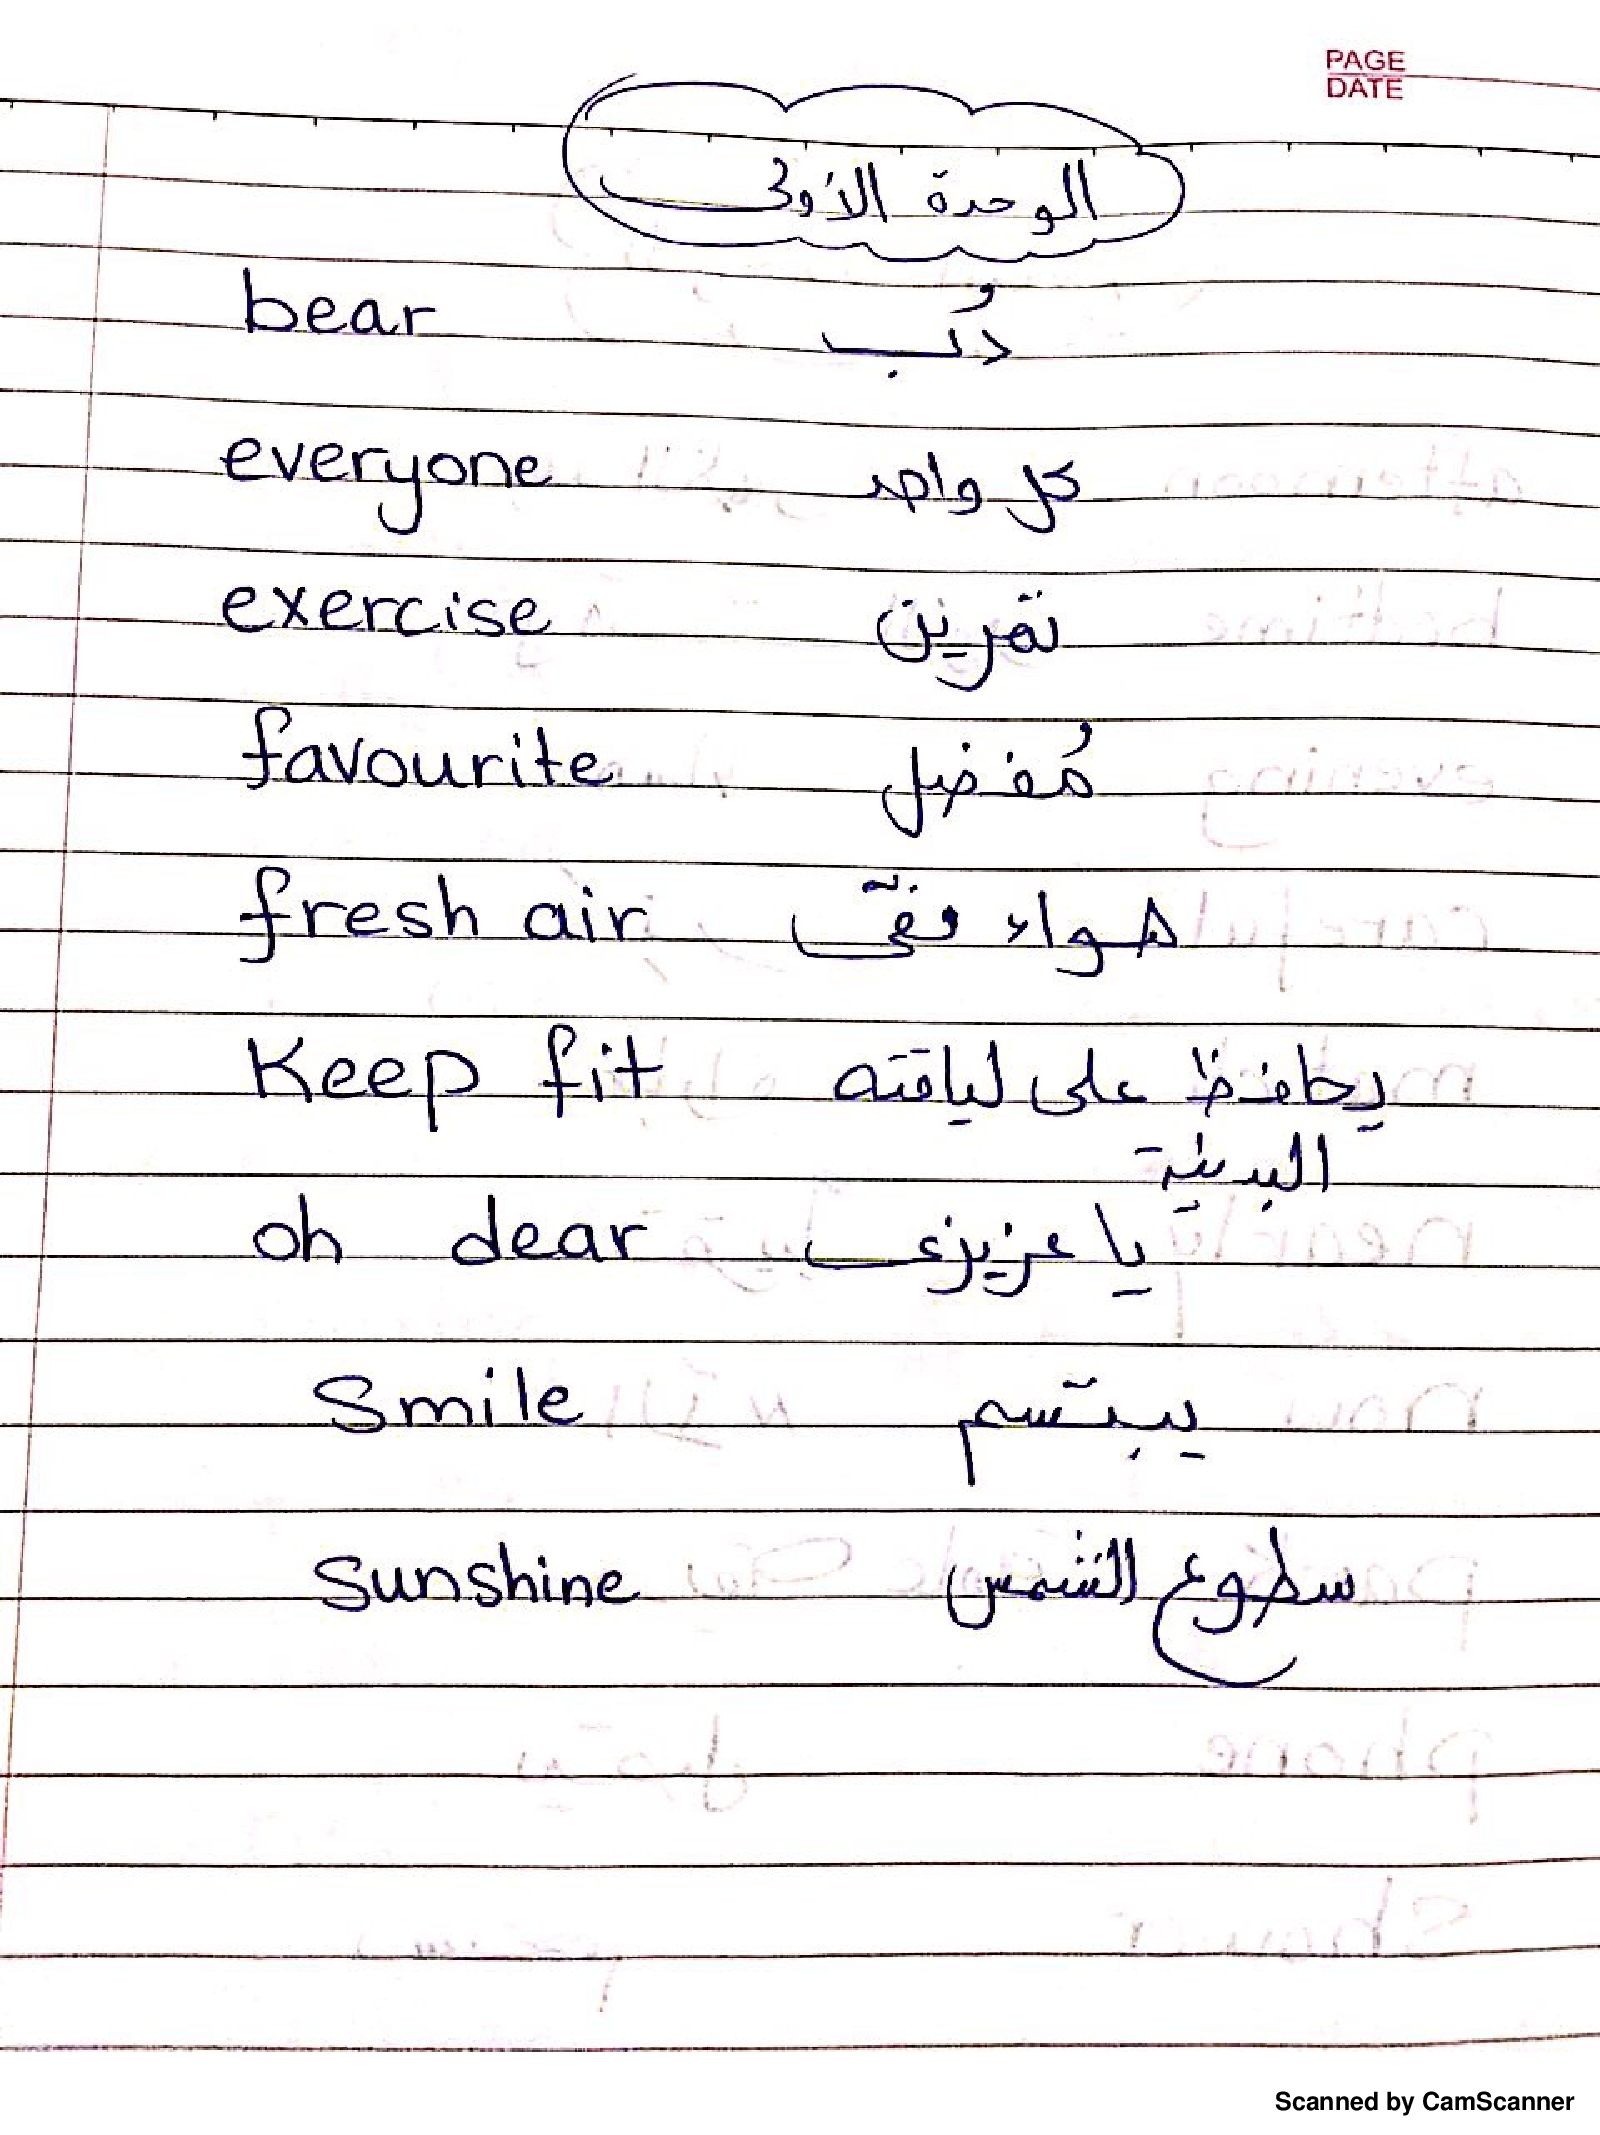 PAGE
DATE
الوحدة الأولى
bear دُب
everyone كل واحد
exercise تمرين
favourite مُفضل
fresh air هواء نقىّ
Keep fit يحافظ على لياقته
البدنية
oh dear يا عزيزى
Smile يبتسم
Sunshine سطوع الشمس
Scanned by CamScanner